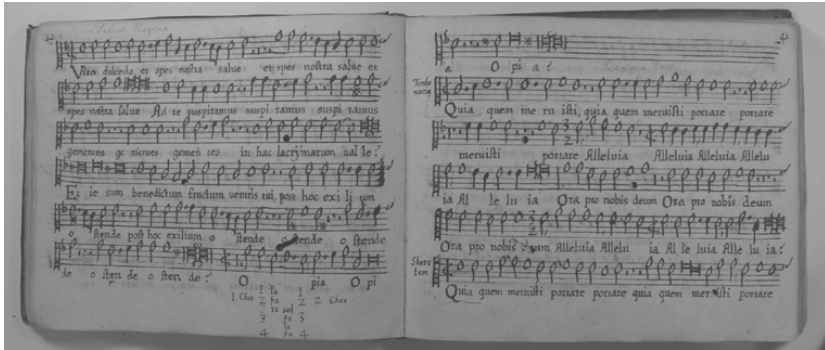 Salve Regina
Vita dulcedo et spes nostra salue et spes nostra salue et
spes nostra salue Ad te suspiramus suspi ramus suspi ramus
gementes ge mentes gemen tes in hac lacrymarum ual le?
Et ie sum benedictum fructum uentris tui, post hoc exi li um
o stende post hoc exilium o stende o stende o stende
de o sten de o sten de? O pia O pi
1 fa 1
1 Chor 2 fa 2 2 Chor
re sol
3 fa 3
la
4 fa 4
41
a O pia?
Quia quem me ru isti, quia quem meruisti portare portare
meruisti portare Alleluia Alleluia Alleluia Allelu
ia Al le lu ia Ora pro nobis deum Ora pro nobis deum
Ora pro nobis deum Alleluia Allelu ia Al le luia Alle lu ia?
Quia quem meruisti portare portare quia quem meruisti portare